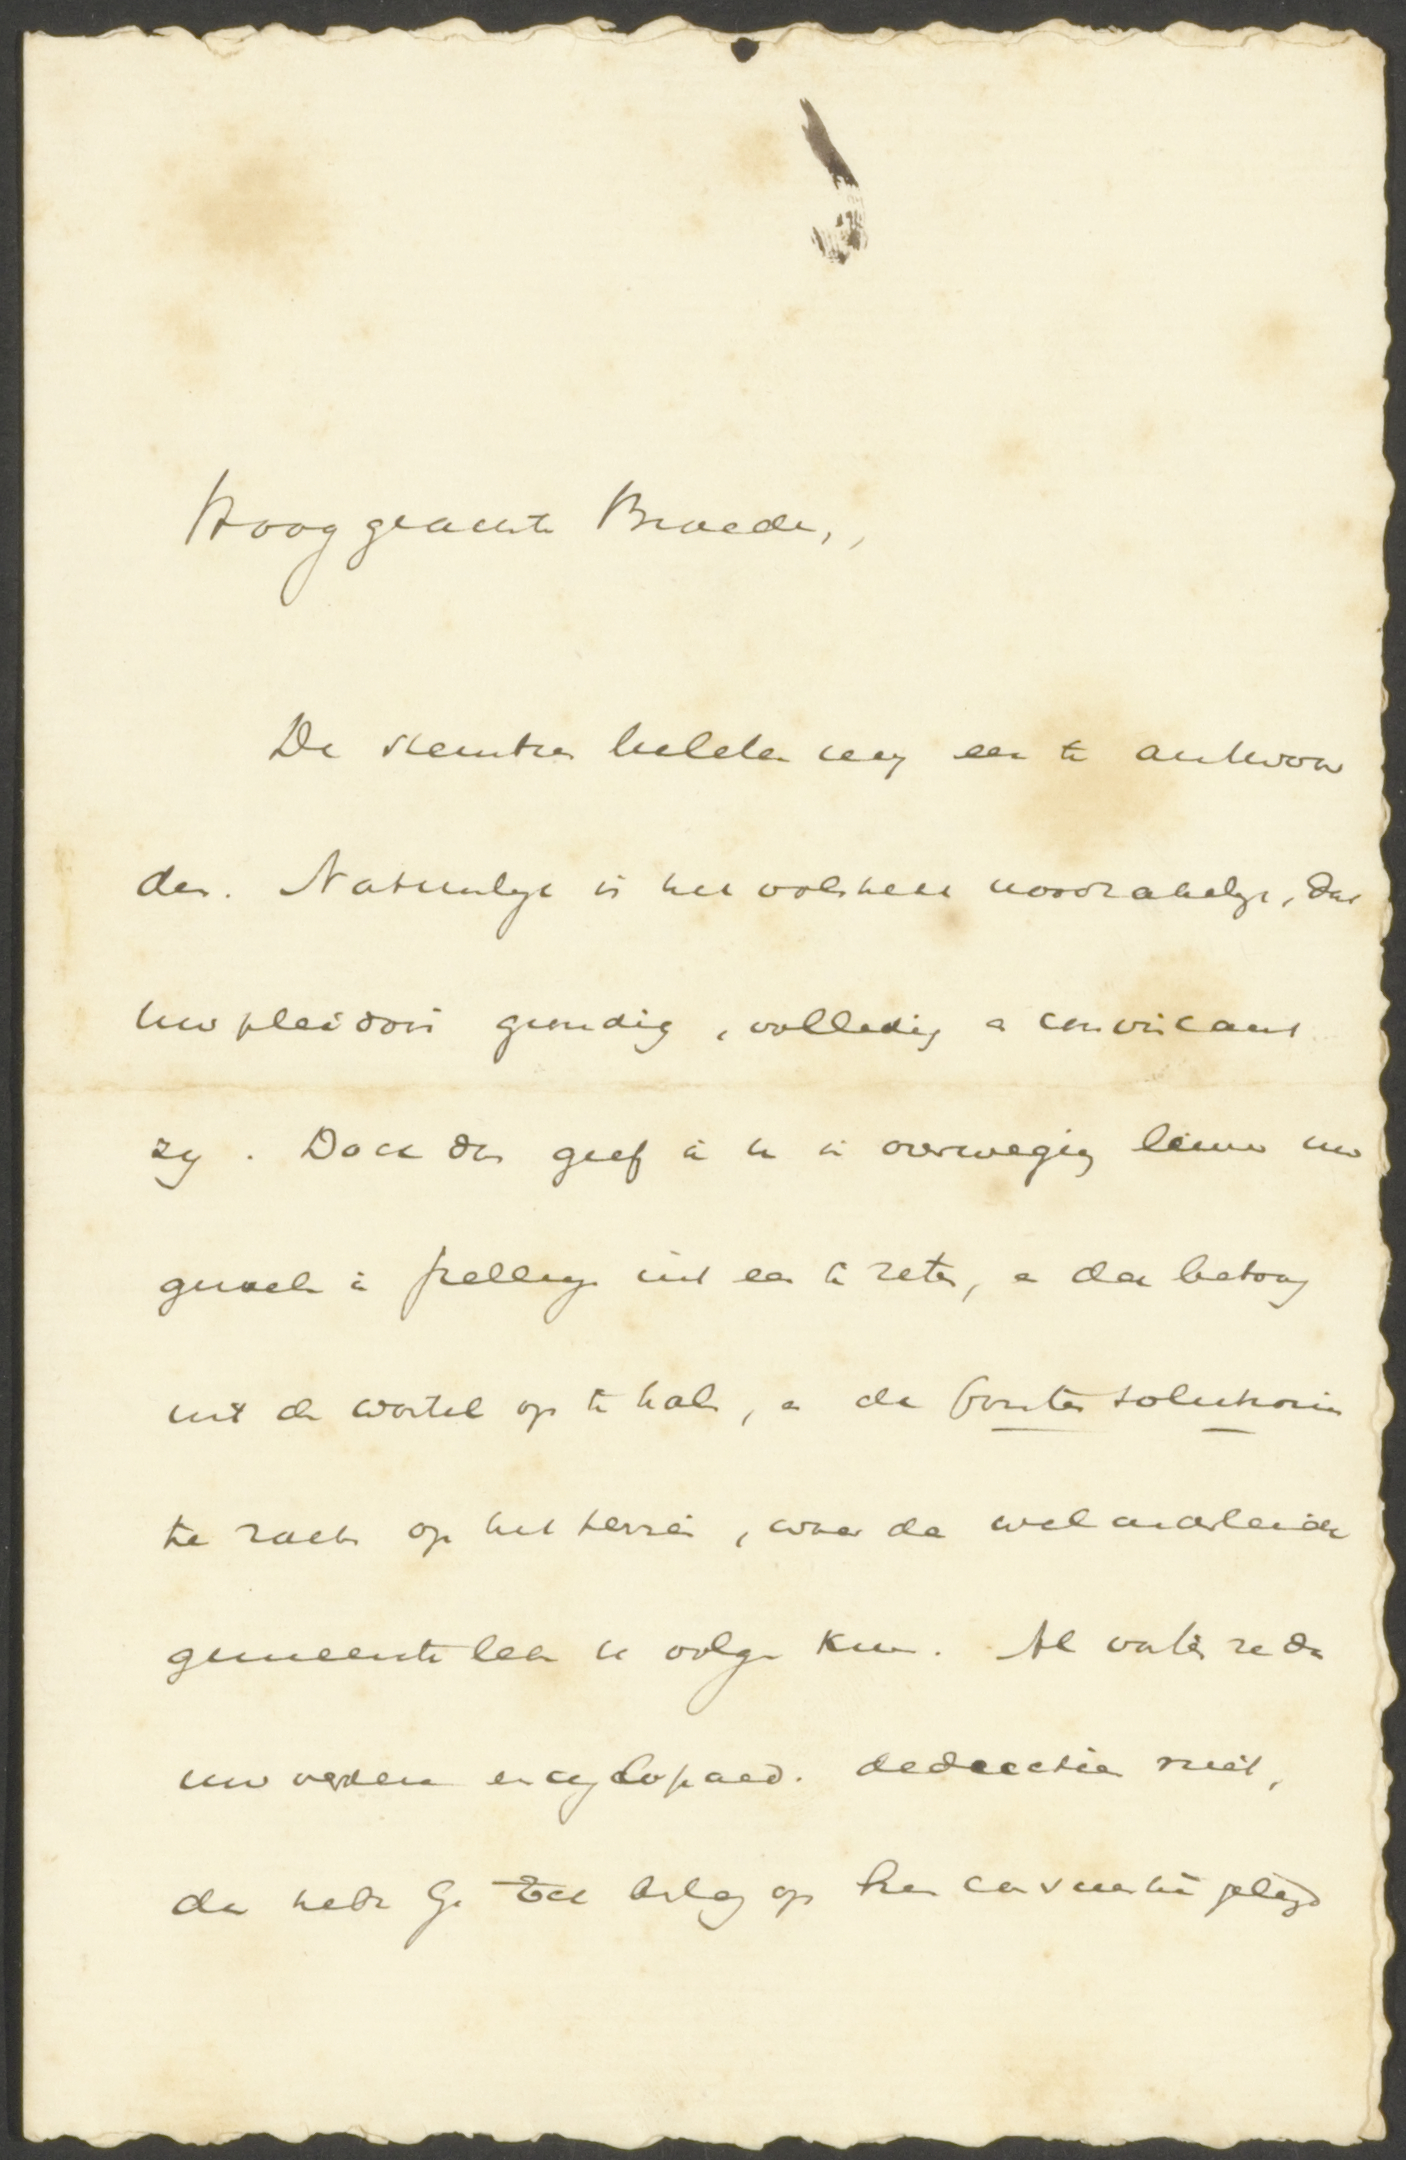 Hooggeachte Broeder,
De kieuwtjes hielden mij een te antwoor
den. Natuurlijk is het volstrekt noodzakelijk, dat
uw pleidooi grondig, volledig en convincant
zij. Doch dan geef ik u in overweging liever uw
gevoelen in stellingen uit een te zetten, en den betoog
uit de wortel op te halen, en de fontes solutionis
te zoeken op het terrein, waar de wel onderleide
gemeenteleden u volgen kunnen. Al vatten ze dan
uw verdere encyclopaed. deductien niet,
dan hebt Ge toch beslag op hen conscientie gelegd